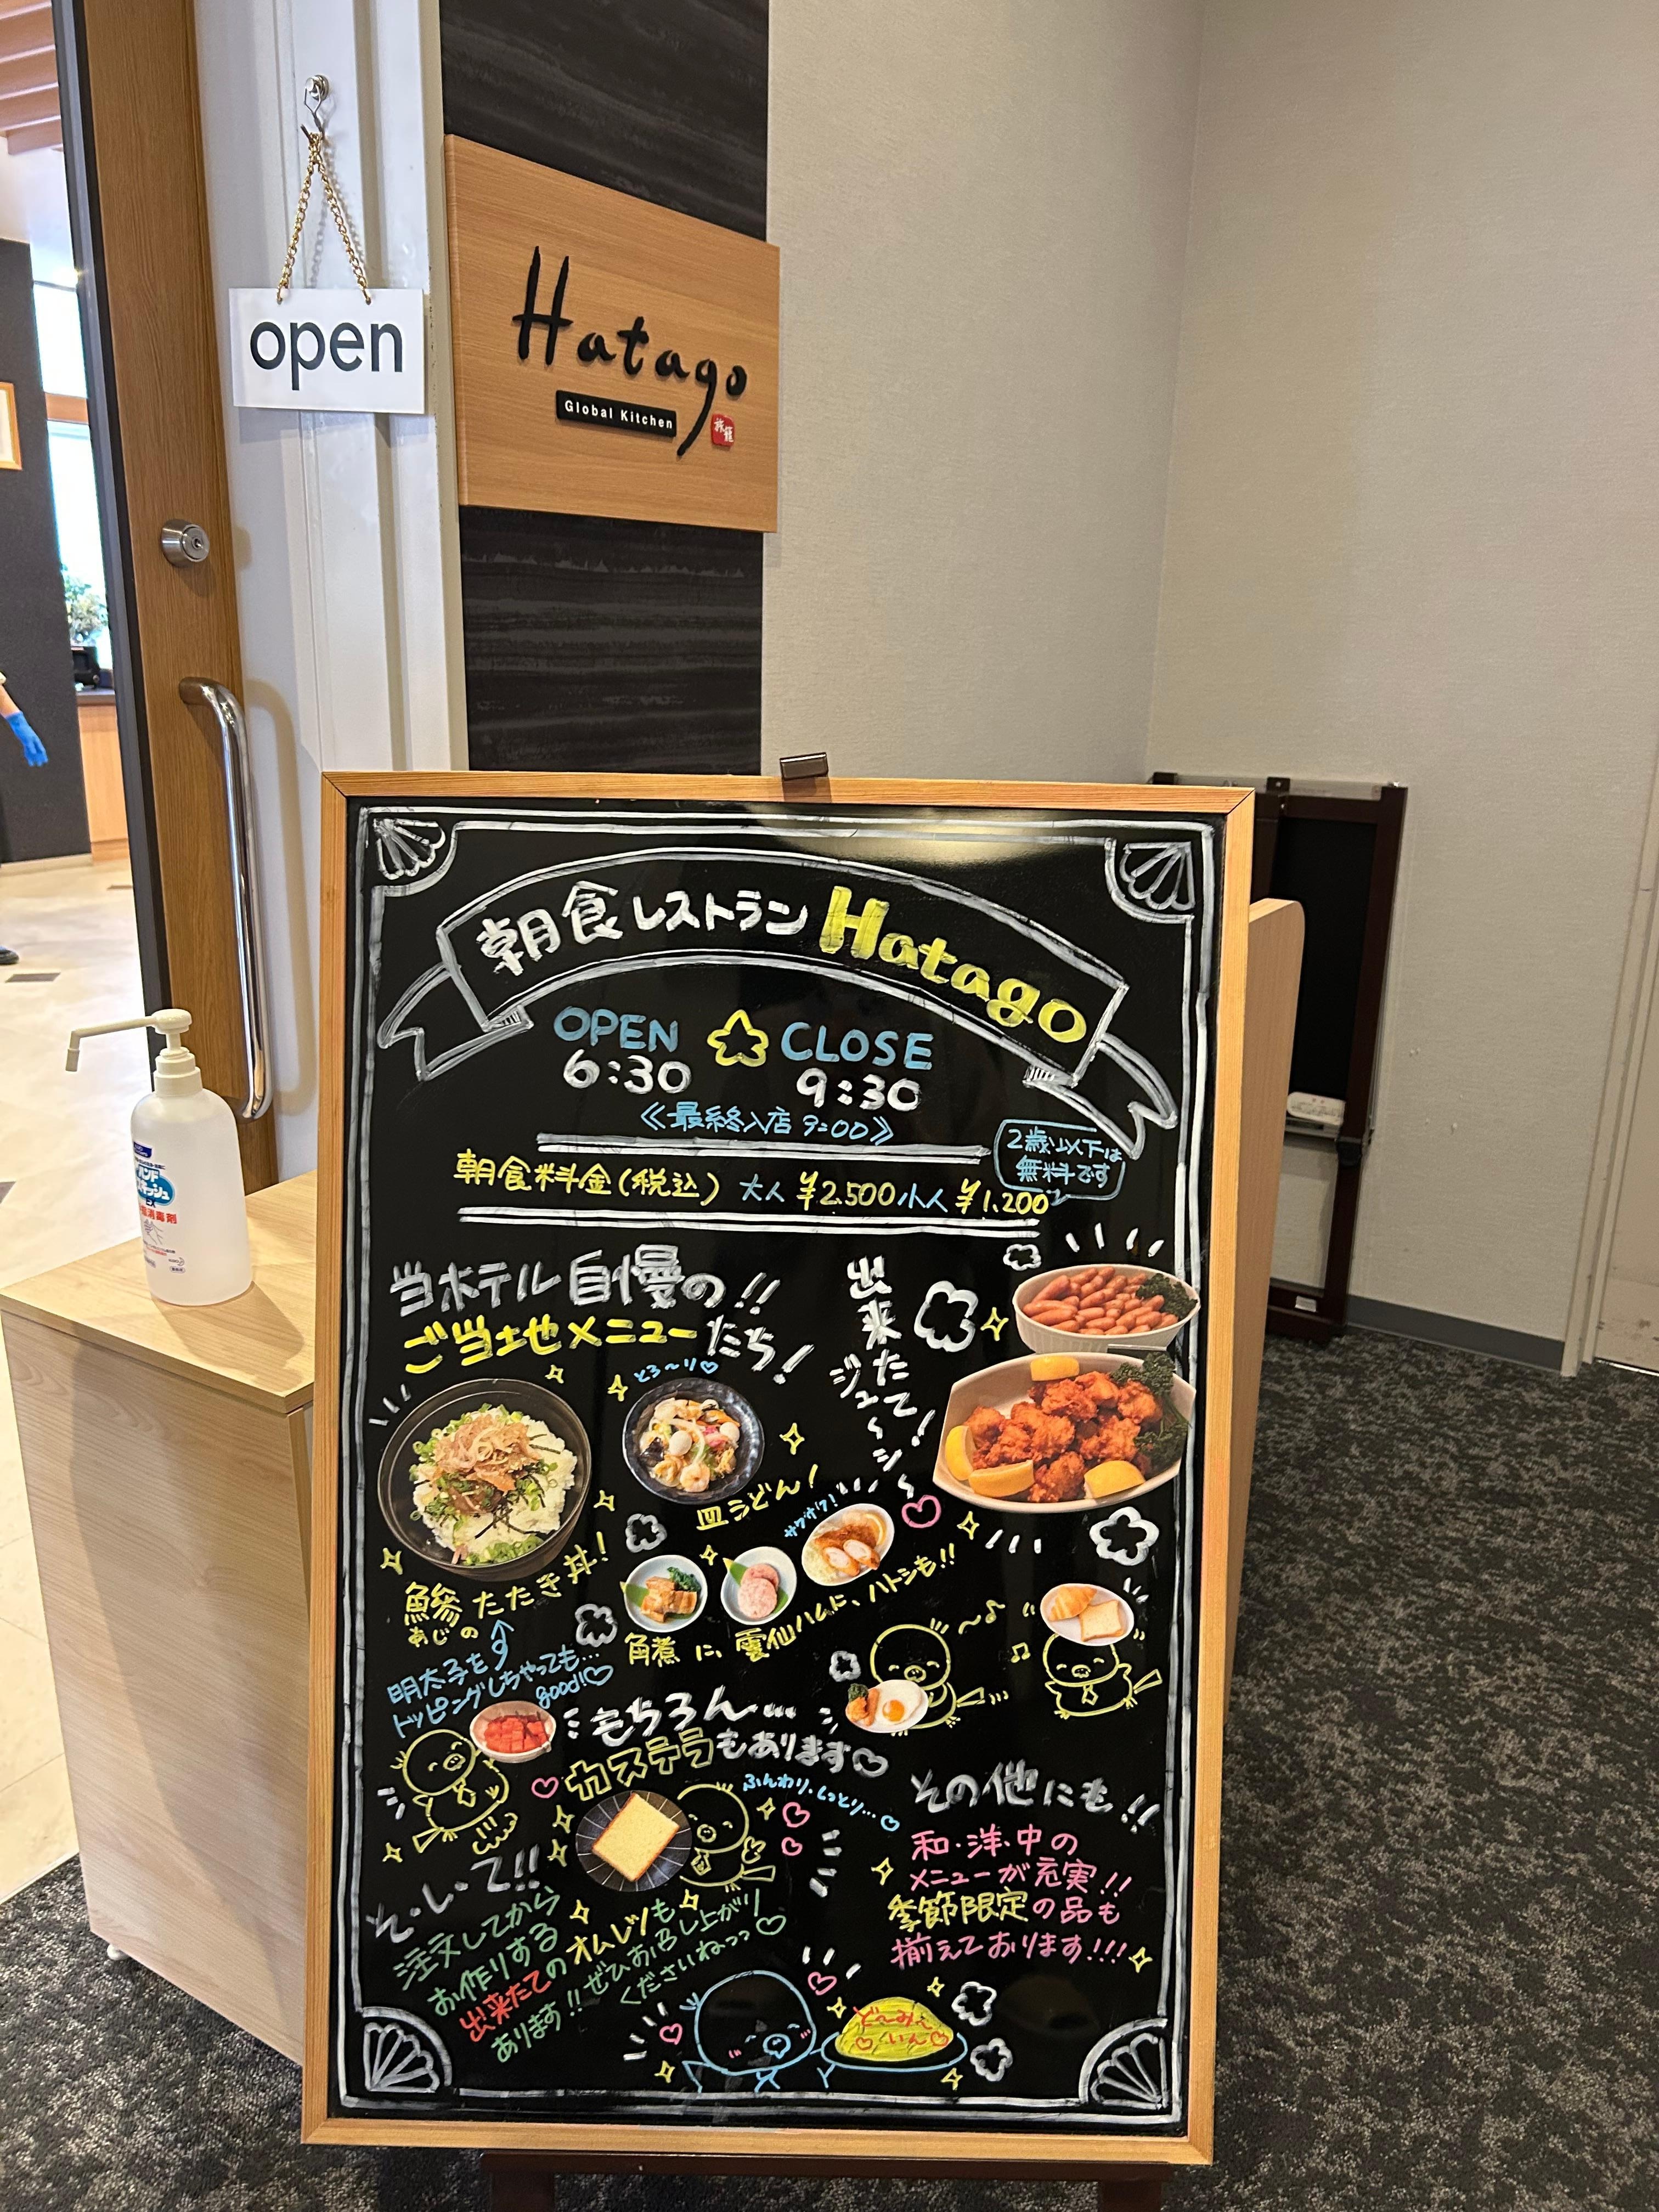 open
Hatago
Global Kitchen
旅籠
朝食レストラン Hatago
OPEN CLOSE
6:30 9:30
≪最終入店 9:00≫
2歳以下は
無料です
朝食料金(税込) 大人 ¥2,500 小人 ¥1,200
当ホテル自慢の!!
ご当地メニューたち!
出来たて!
ジューシ〜
とろ〜り♡
皿うどん!
サクサク!
鯵たたき丼!
あじの
角煮に、雲仙ハムに、ハトシも!!
明太子を
トッピングしちゃっても…
good!!♡
もちろん…
カステラもあります♡
ふんわり・しっとり…♡
その他にも!!
和・洋・中の
メニューが充実!!
季節限定の品も
揃えております!!!
そ・し・て!!
注文してから
お作りする
出来たてのオムレツも
あります!!ぜひお召し上がり
くださいねっっ♡